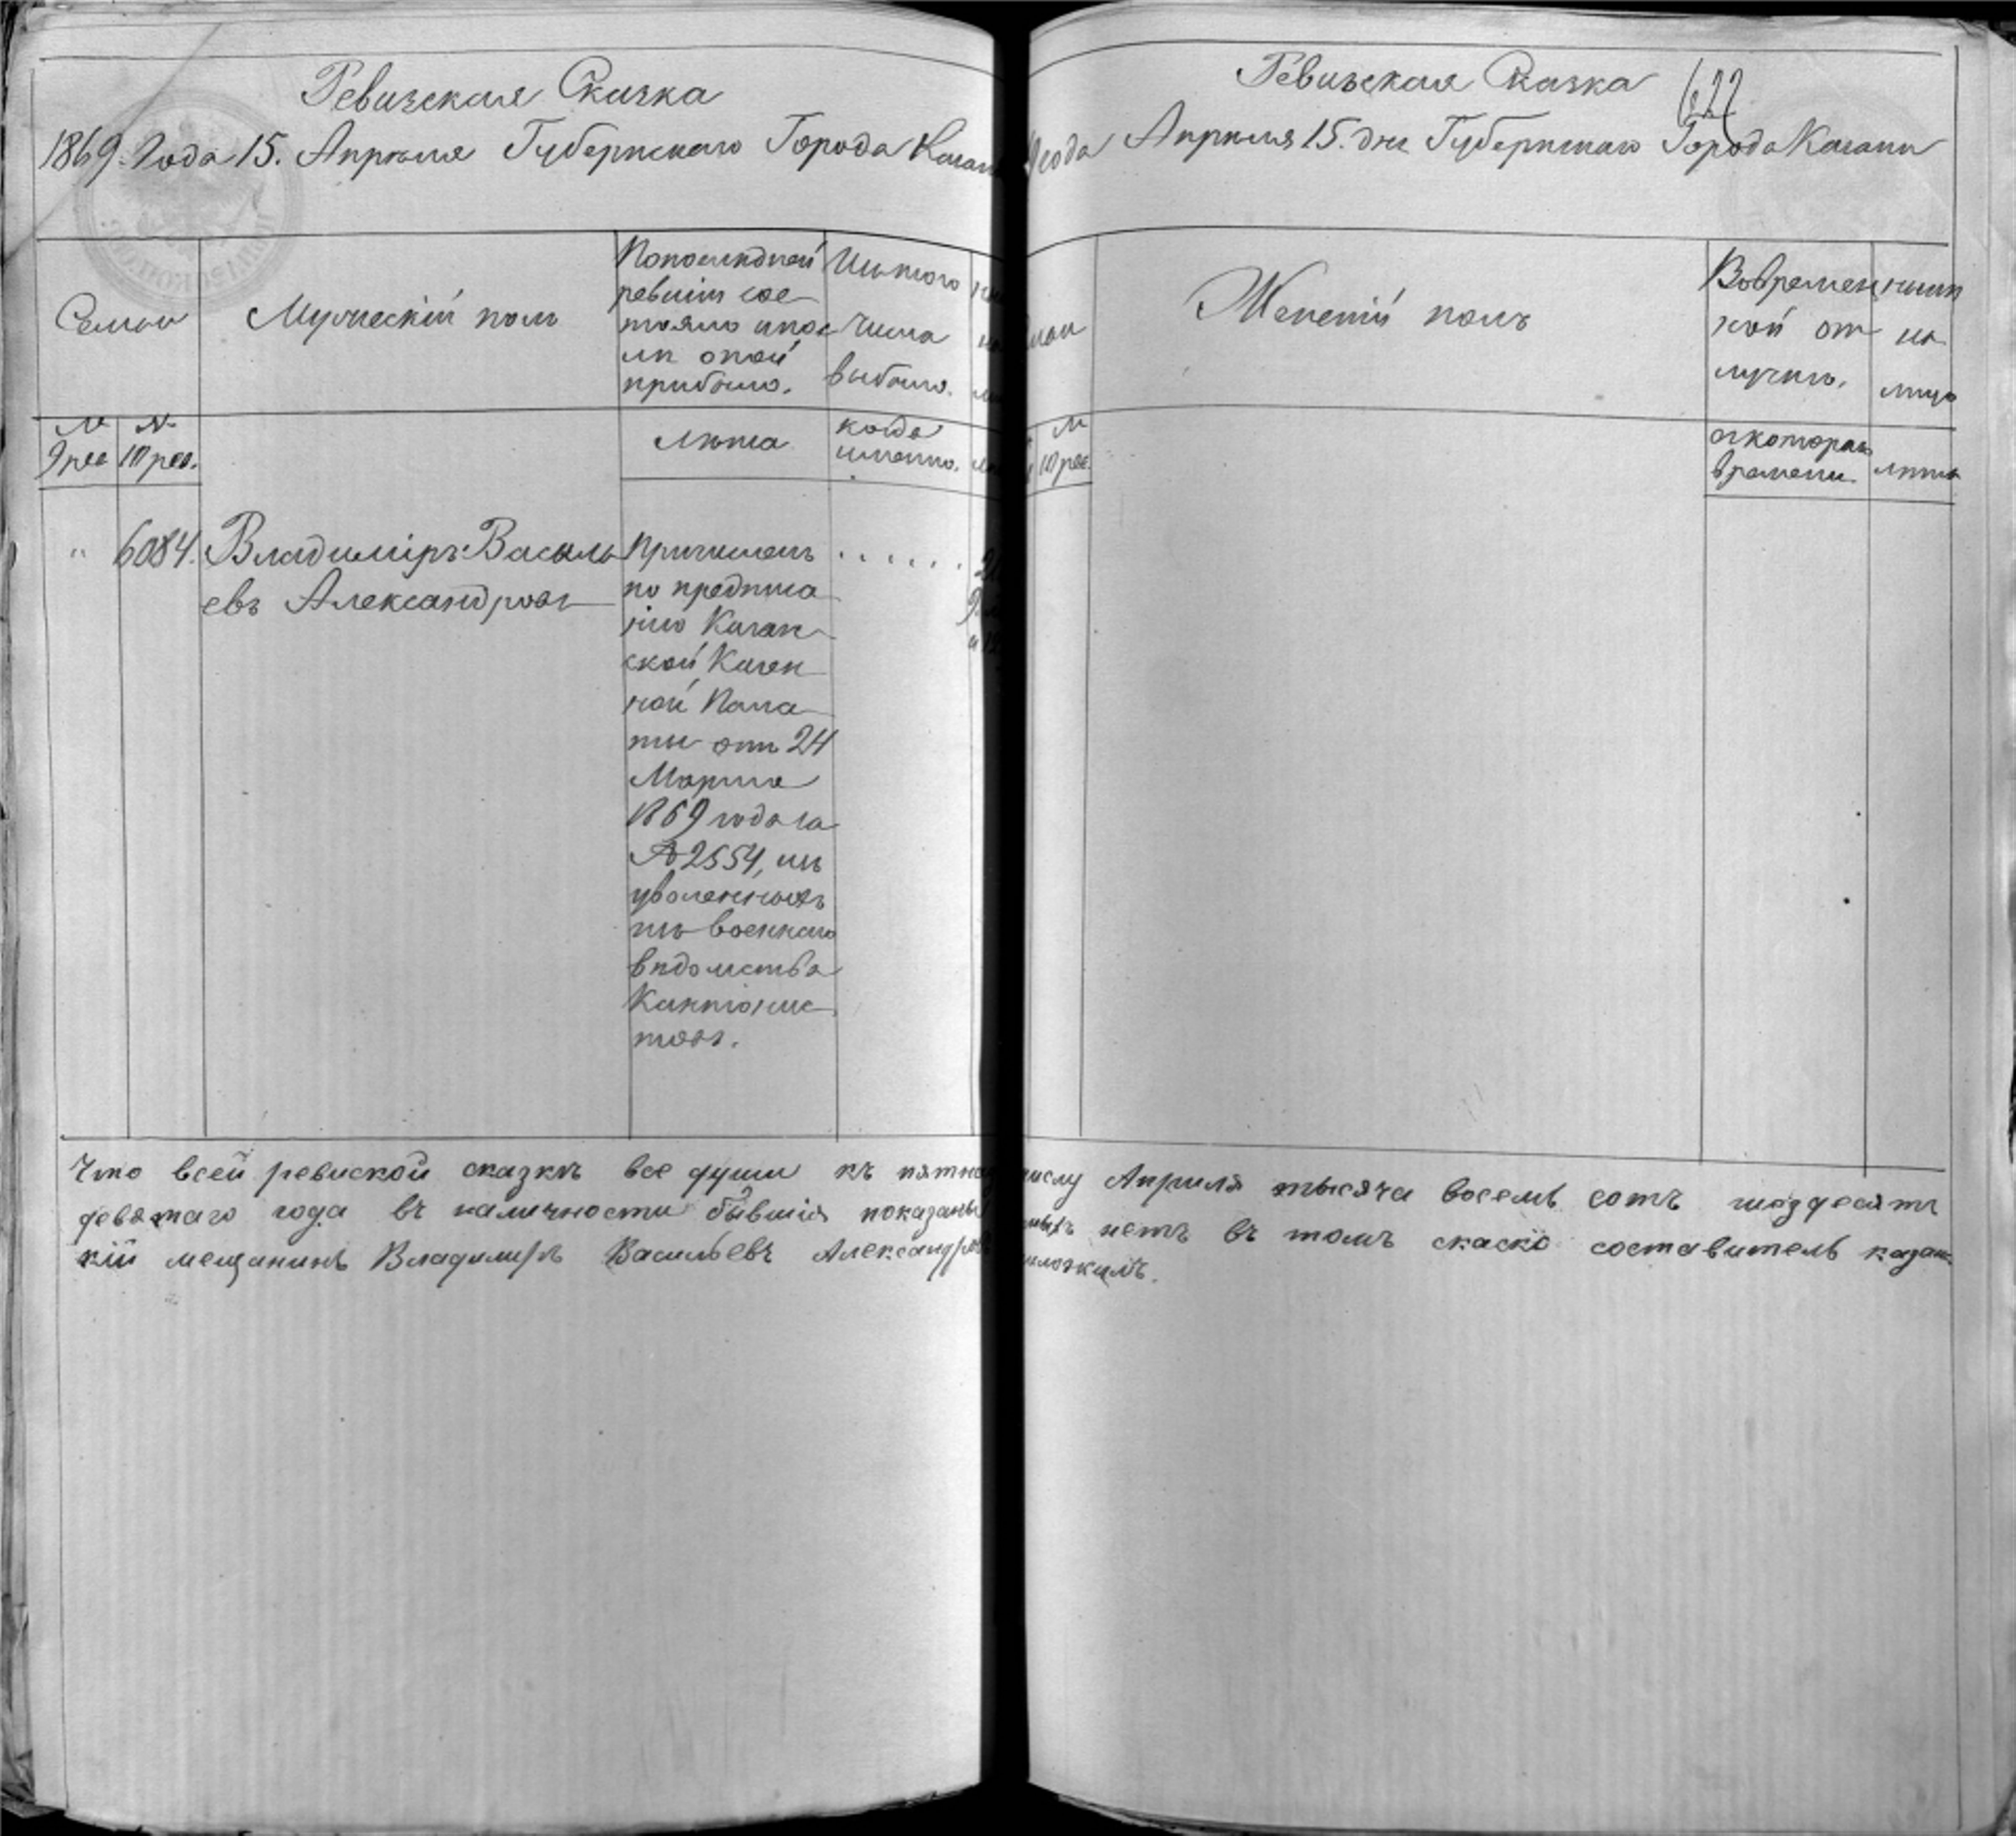 Ревизская Сказка
1869. Года 15. Апреля Губернскаго Города Казан
Семьи
Мужескій полъ
По последней
ревизіи сос-
тояло и пос
ле оной
прибыло.
Изъ того
числа
выбыло.
№
9 рев
№
10 рев.
Лета
когда
именно.
"
6084.
Владиміръ Василь
евъ Александровъ
Причисленъ
по предписа
нію Казан
ской Казен
ной Пала
ты отъ 24
Марта
1869 года за
№ 2554, изъ
уволенныхъ
изъ военнаго
ведомства
Кантонис
товъ.
Ревизская Сказка
622
года Апреля 15. дня Губернскаго Города Казани
Женскій полъ
Во времен
ной от
лучке.
ныне
на
лицо
№
10 рев.
съ котораго
времени.
лета
Что всей ревиской сказке все души къ пятнад числу Апреля тысяча восемь сотъ шездесятъ
девятаго года въ наличности бывшія показаны нетъ въ томъ скаске составитель казан
кій мещанинъ Владимиръ Васильевъ Александров